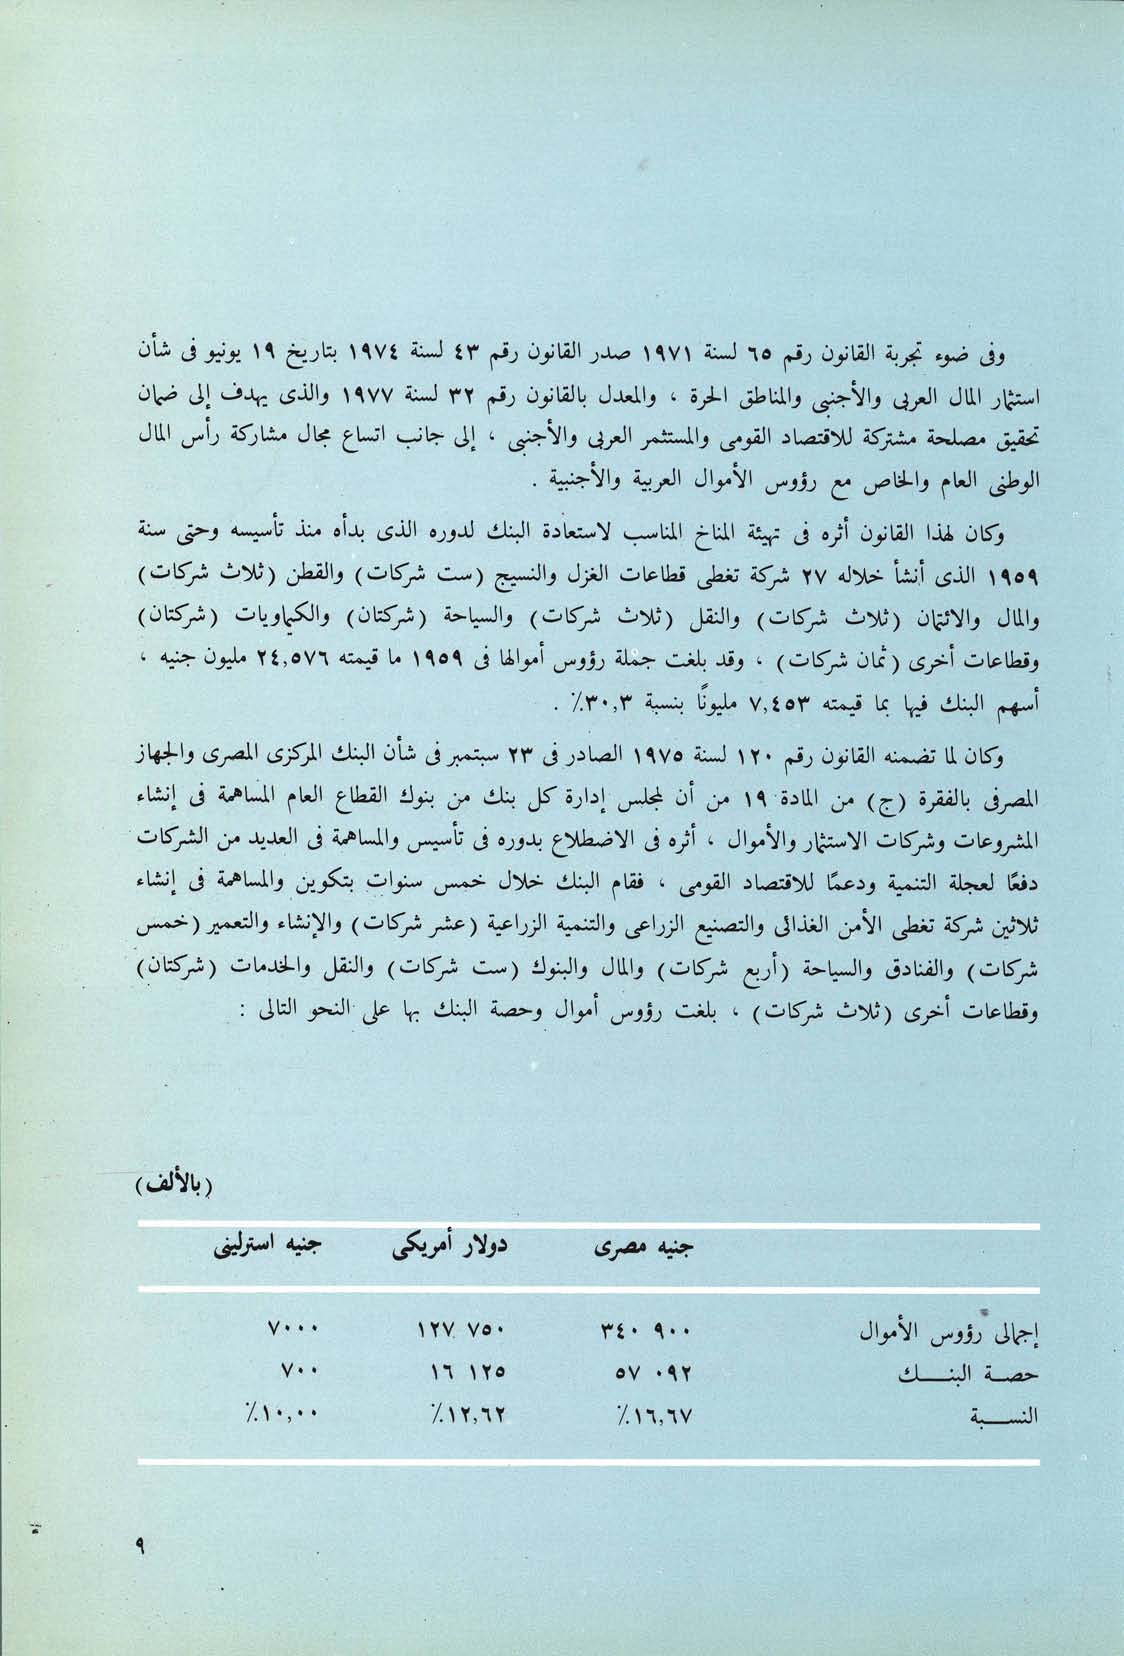 وفى ضوء تجربة القانون رقم ٦٥ لسنة ١٩٧١ صدر القانون رقم ٤٣ لسنة ١٩٧٤ بتاريخ ١٩ يونيو فى شأن
استثمار المال العربى والأجنبى والمناطق الحرة ، والمعدل بالقانون رقم ٣٢ لسنة ١٩٧٧ والذى يهدف إلى ضمان
تحقيق مصلحة مشتركة للاقتصاد القومى والمستثمر العربى والأجنبى ، إلى جانب اتساع مجال مشاركة رأس المال
الوطنى العام والخاص مع رؤوس الأموال العربية والأجنبية .
وكان لهذا القانون أثره فى تهيئة المناخ المناسب لاستعادة البنك لدوره الذى بدأه منذ تأسيسه وحتى سنة
١٩٥٩ الذى أنشأ خلاله ٢٧ شركة تغطى قطاعات الغزل والنسيج (ست شركات) والقطن (ثلاث شركات)
والمال والائتمان (ثلاث شركات) والنقل (ثلاث شركات) والسياحة (شركتان) والكيماويات (شركتان)
وقطاعات أخرى (ثمان شركات) ، وقد بلغت جملة رؤوس أموالها فى ١٩٥٩ ما قيمته ٢٤,٥٧٦ مليون جنيه ،
أسهم البنك فيها بما قيمته ٧,٤٥٣ مليونًا بنسبة ٣٠,٣٪ .
وكان لما تضمنه القانون رقم ١٢٠ لسنة ١٩٧٥ الصادر فى ٢٣ سبتمبر فى شأن البنك المركزى المصرى والجهاز
المصرفى بالفقرة (ج) من المادة ١٩ من أن لمجلس إدارة كل بنك من بنوك القطاع العام المساهمة فى إنشاء
المشروعات وشركات الاستثمار والأموال ، أثره فى الاضطلاع بدوره فى تأسيس والمساهمة فى العديد من الشركات
دفعًا لعجلة التنمية ودعمًا للاقتصاد القومى ، فقام البنك خلال خمس سنوات بتكوين والمساهمة فى إنشاء
ثلاثين شركة تغطى الأمن الغذائى والتصنيع الزراعى والتنمية الزراعية (عشر شركات) والإنشاء والتعمير (خمس
شركات) والفنادق والسياحة (أربع شركات) والمال والبنوك (ست شركات) والنقل والخدمات (شركتان)
وقطاعات أخرى (ثلاث شركات) ، بلغت رؤوس أموال وحصة البنك بها على النحو التالى :
(بالألف)
جنيه مصرى دولار أمريكى جنيه استرلينى
إجمالى رؤوس الأموال ٣٤٠ ٩٠٠ ١٢٧ ٧٥٠ ٧٠٠٠
حصة البنك ٥٧ ٠٩٢ ١٦ ١٢٥ ٧٠٠
النسبة ١٦,٦٧٪ ١٢,٦٢٪ ١٠,٠٠٪
٩